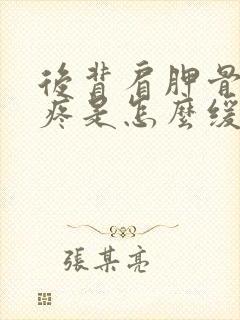 後背肩胛骨
疼是怎麼緩
張某亮